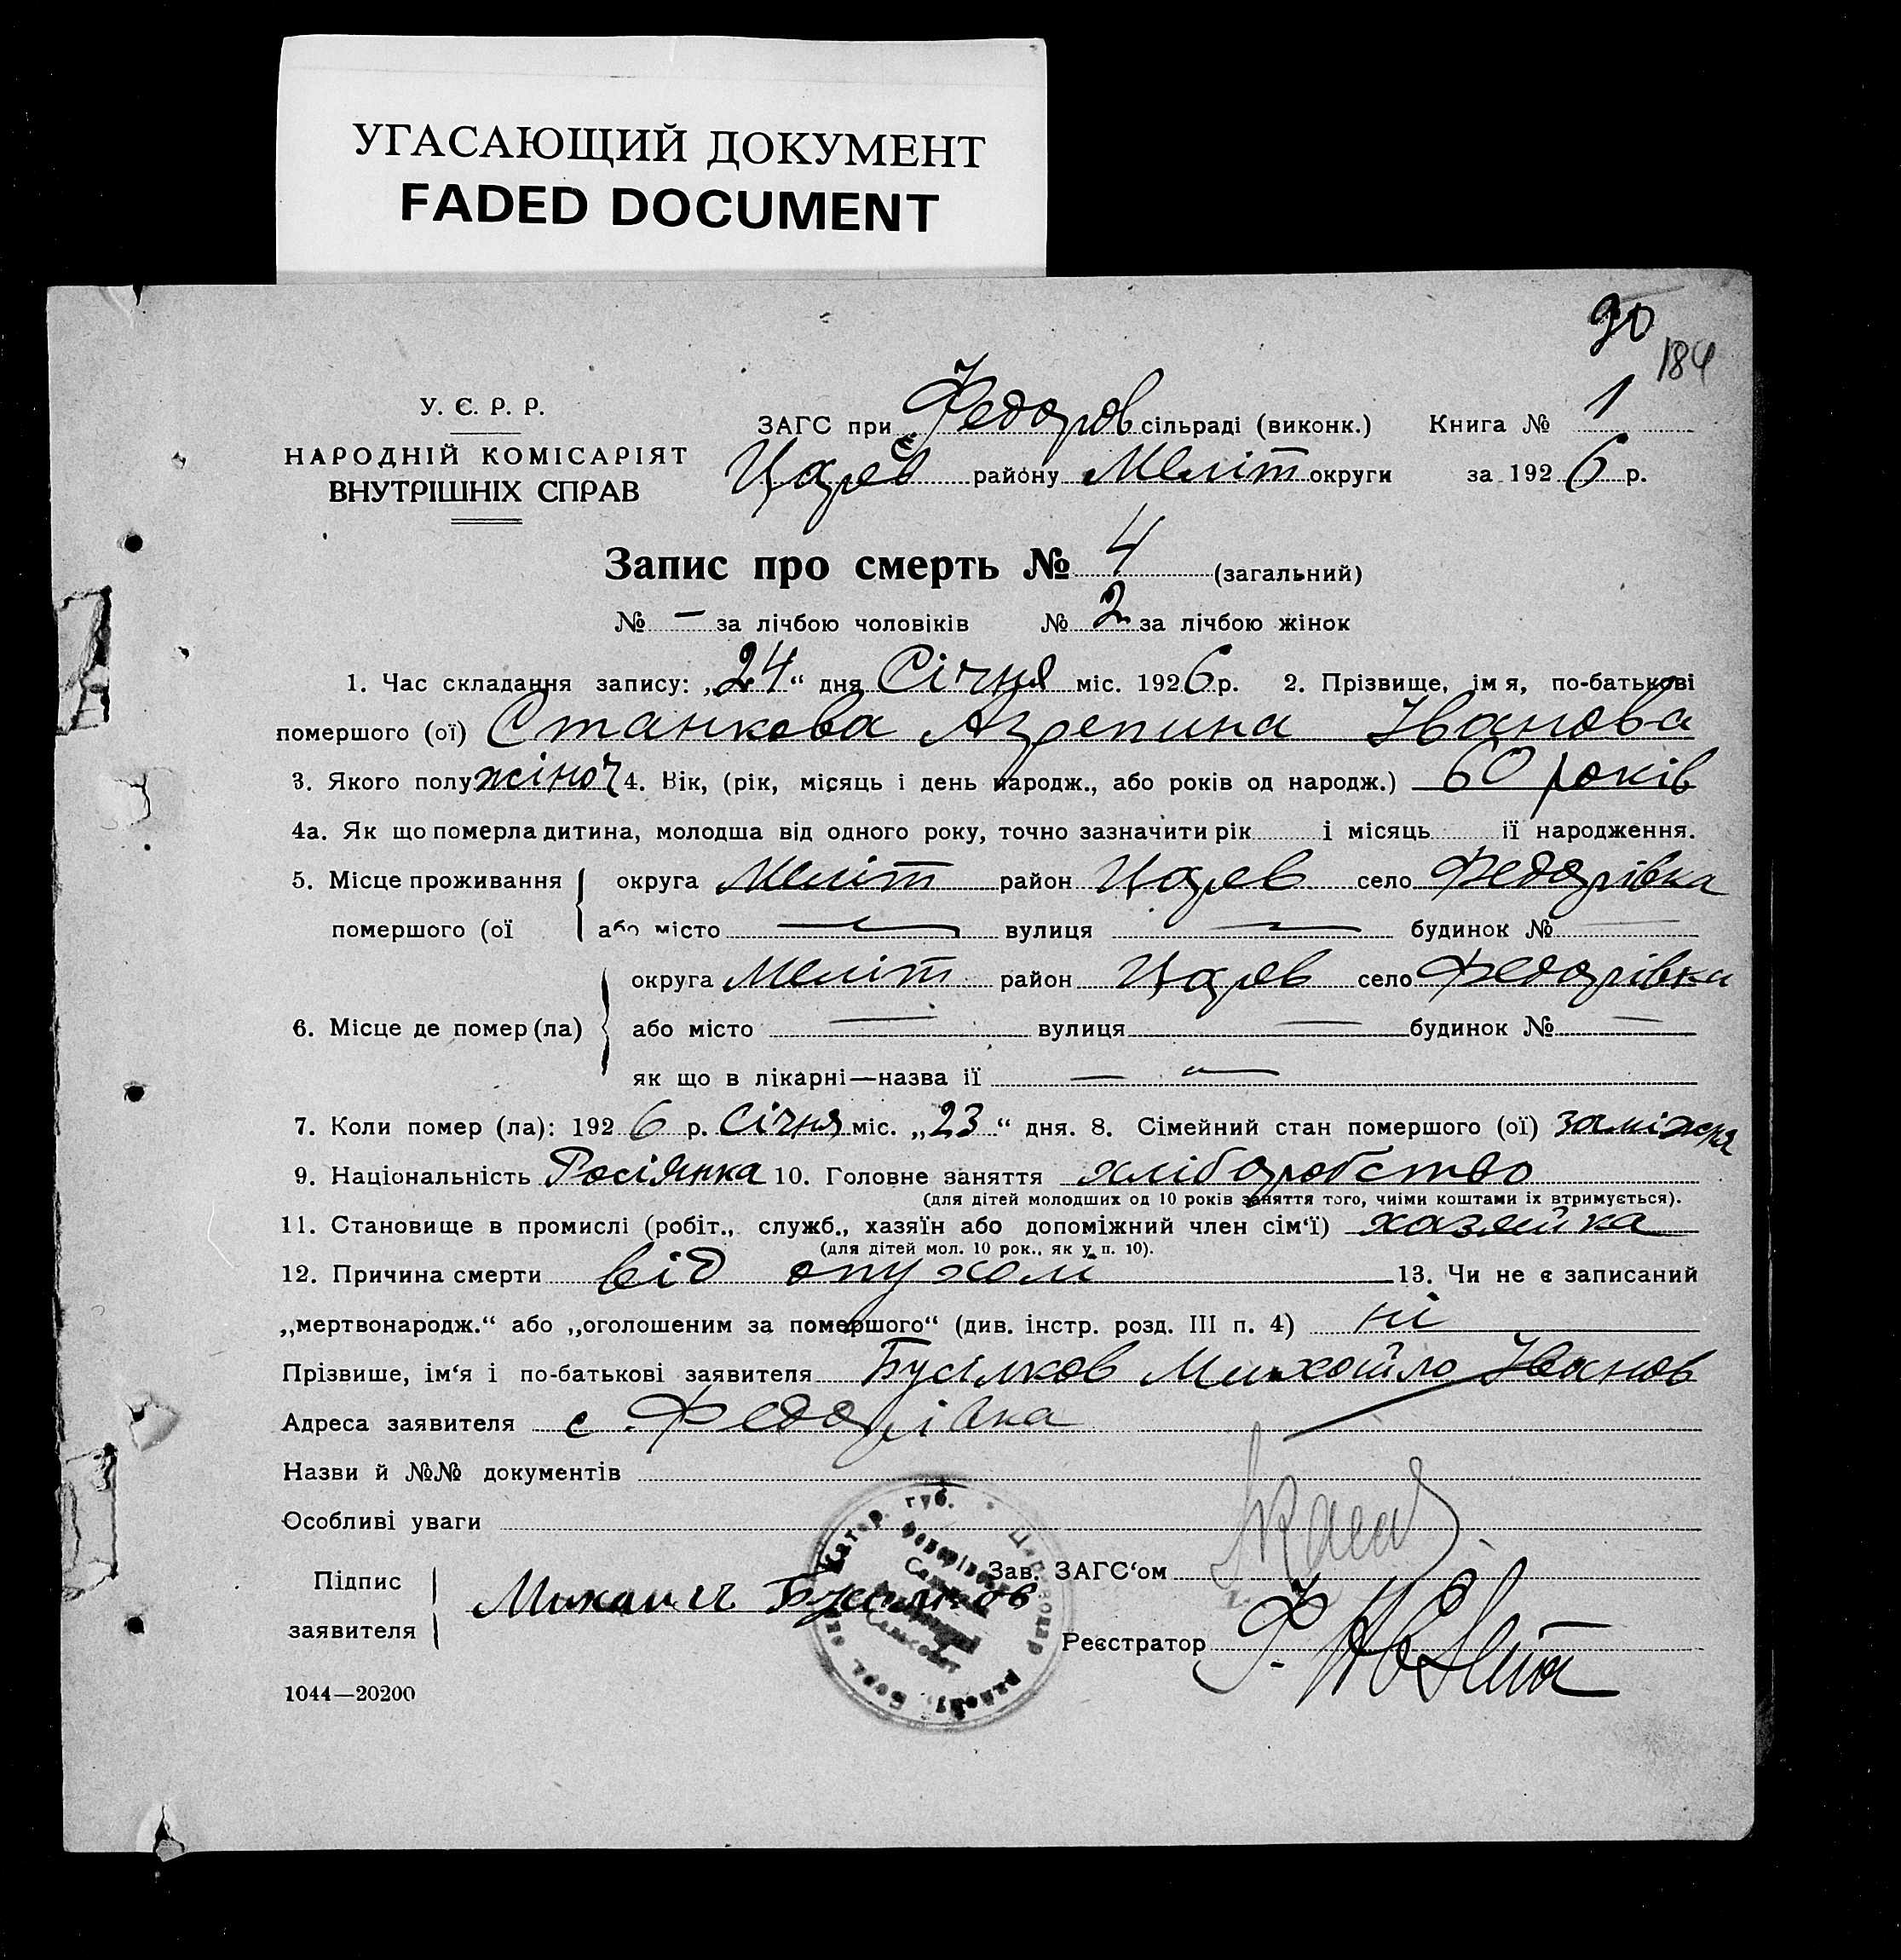 УГАСАЮЩИЙ ДОКУМЕНТ
FADED DOCUMENT
90
184
У. Є. Р. Р.
НАРОДНІЙ КОМІСАРІЯТ
ВНУТРІШНІХ СПРАВ
ЗАГС при Федоров сільраді (виконк.) Книга № 1
Царев району Меліт округи за 1926 р.
Запис про смерть № 4 (загальний)
№ — за лічбою чоловіків № 2 за лічбою жінок
1. Час складання запису: „24“ дня Січня міс. 1926 р. 2. Прізвище, імя, по-батькові
помершого (ої) Станкова Агрепина Іванова
3. Якого полу жіноч 4. Вік, (рік, місяць і день народж., або років од народж.) 60 років
4а. Як що померла дитина, молодша від одного року, точно зазначити рік і місяць її народження.
5. Місце проживання округа Меліт район Царев село Федорівка
помершого (ої або місто — вулиця — будинок № —
округа Меліт район Царев село Федорівка
6. Місце де помер (ла) або місто — вулиця — будинок № —
як що в лікарні—назва її — —
7. Коли помер (ла): 1926 р. Січня міс. „23“ дня. 8. Сімейний стан помершого (ої) заміжня
9. Національність Росіянка 10. Головне заняття хліборобство
(для дітей молодших од 10 років заняття того, чиїми коштами їх втримується).
11. Становище в промислі (робіт., служб., хазяїн або допоміжний член сім‘ї) хазяйка
(для дітей мол. 10 рок., як у п. 10).
12. Причина смерти від опухолі 13. Чи не є записаний
„мертвонародж.“ або „оголошеним за помершого“ (див. інстр. розд. III п. 4) ні
Прізвише, ім‘я і по-батькові заявителя Бусілков Михайло Іванов
Адреса заявителя с Федорівка
Назви й №№ документів
Особливі уваги
Підпис
заявителя
Михаил
Зав. ЗАГС‘ом
Реєстратор
1044—20200